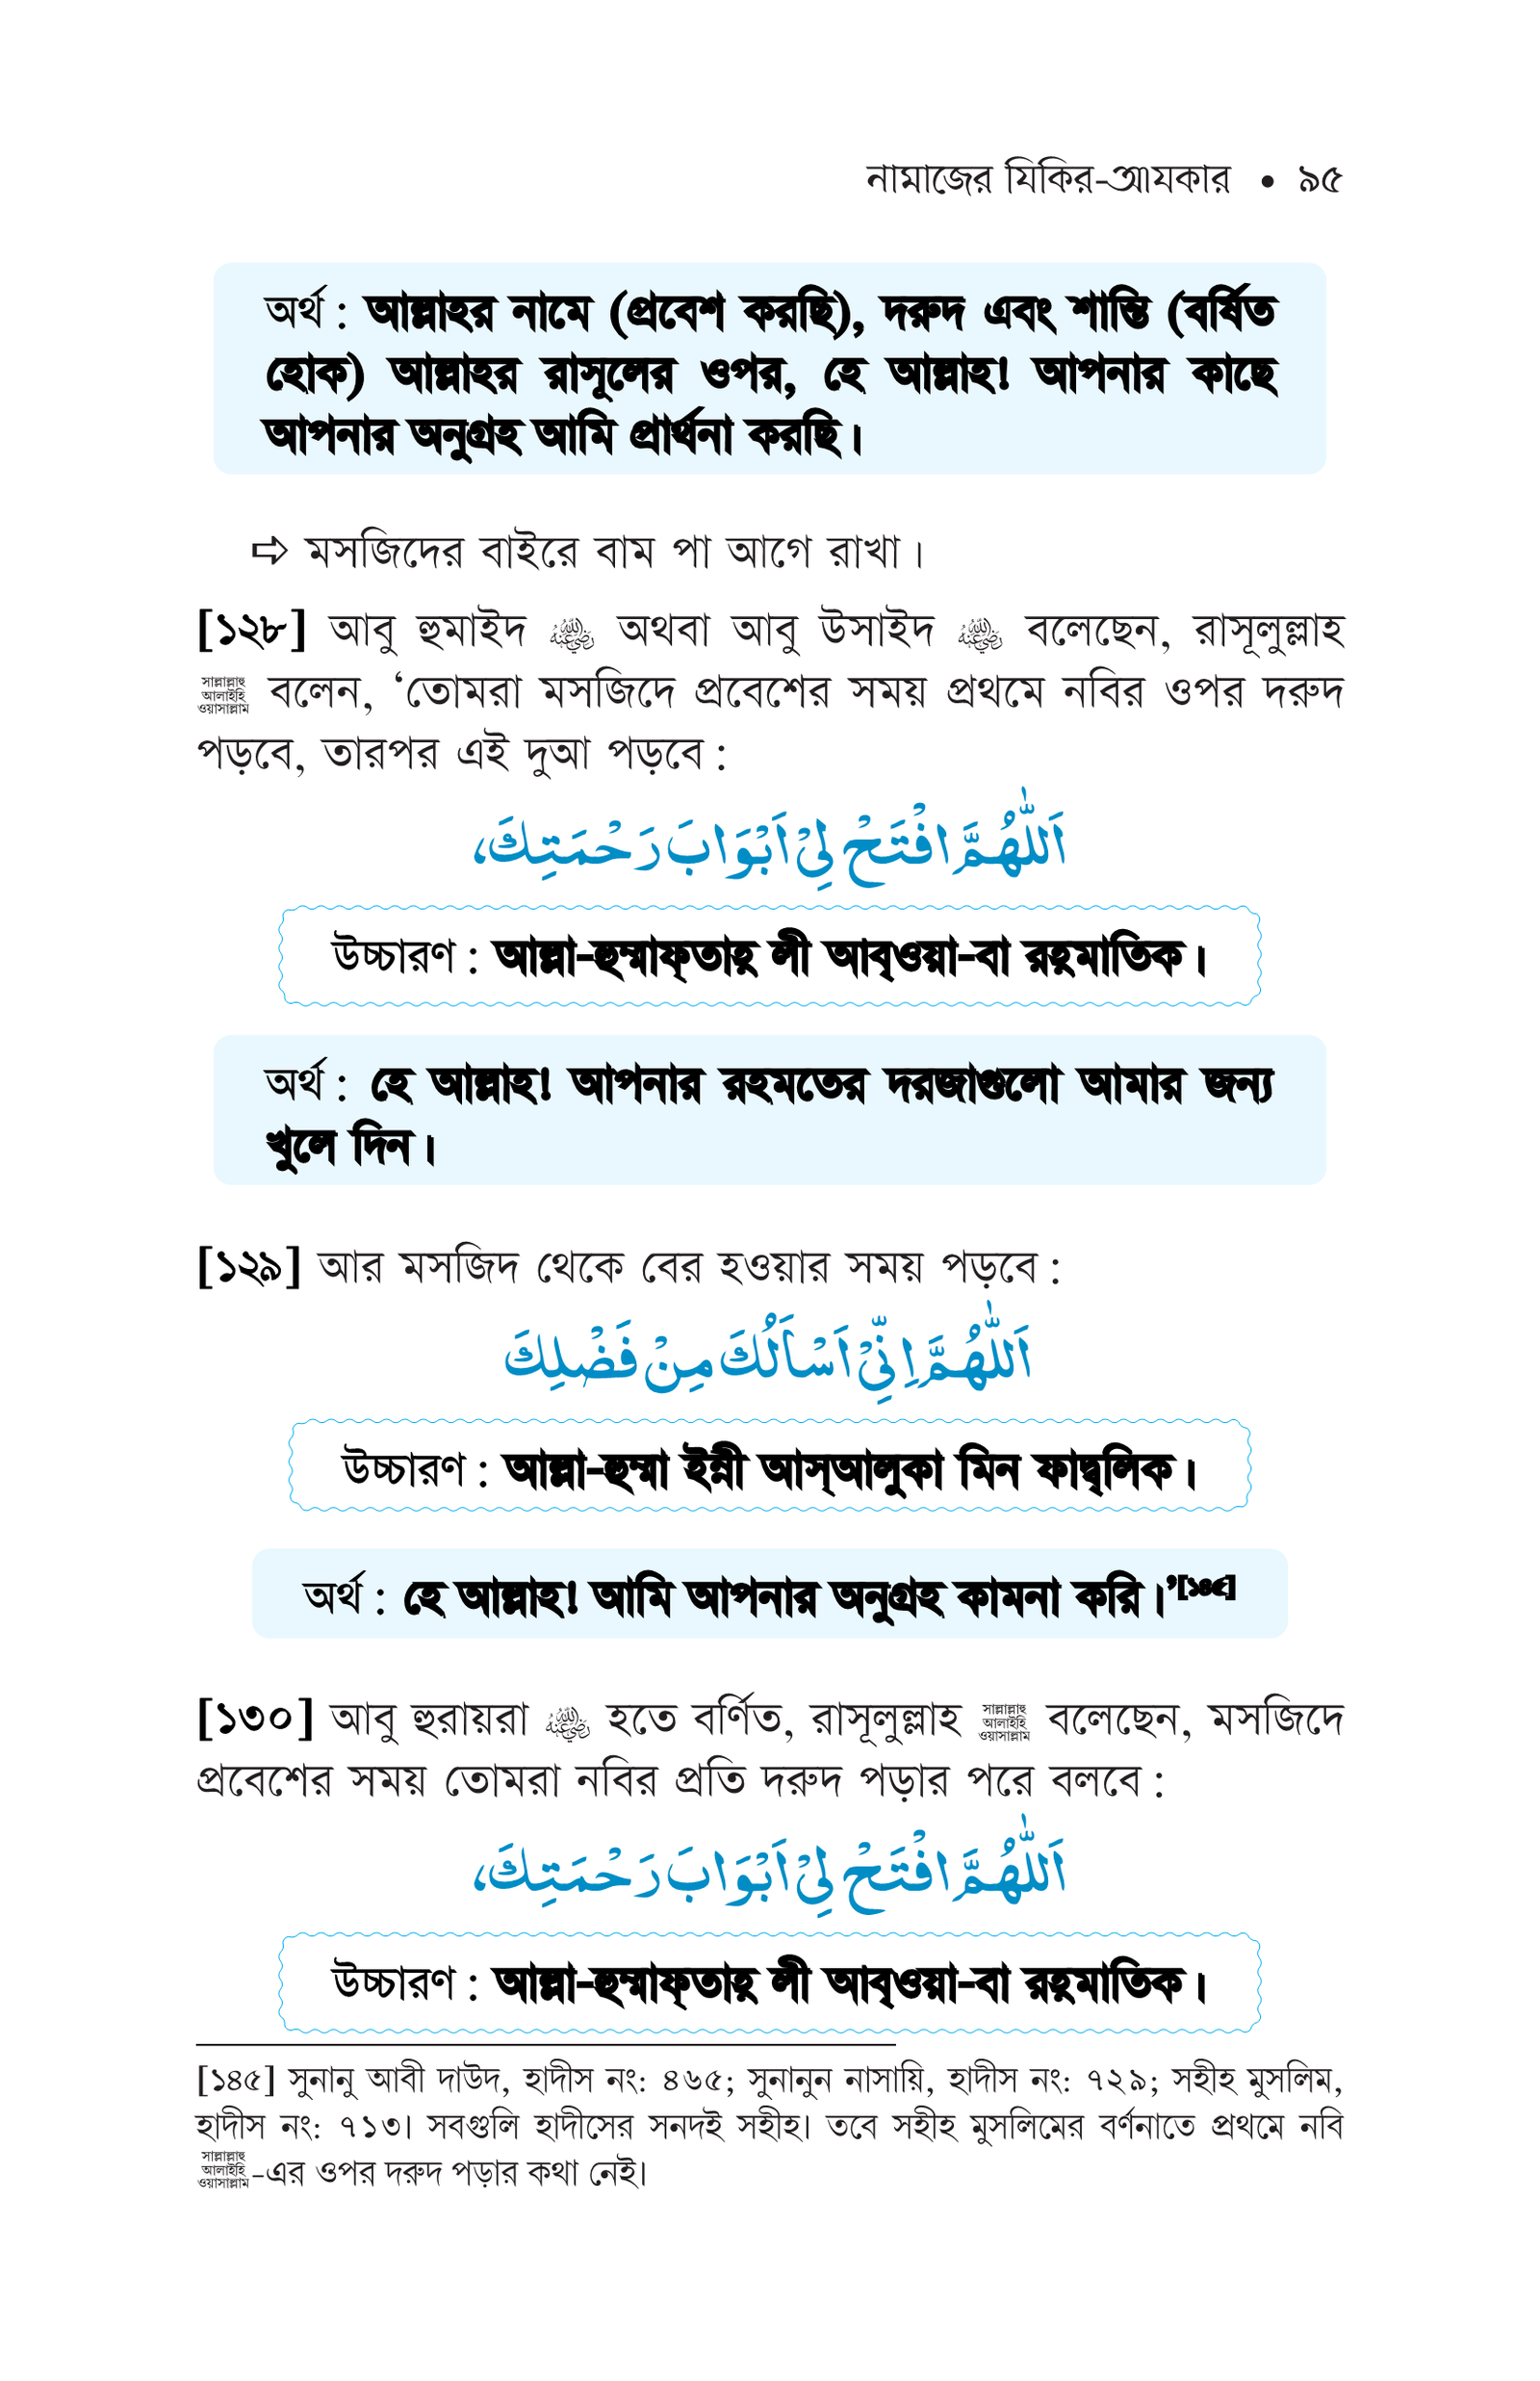 নামাজের যিকির-আযকার • ৯৫
অর্থ : আল্লাহর নামে (প্রবেশ করছি), দরুদ এবং শান্তি (বর্ষিত
হোক) আল্লাহর রাসূলের ওপর, হে আল্লাহ! আপনার কাছে
আপনার অনুগ্রহ আমি প্রার্থনা করছি।
➩ মসজিদের বাইরে বাম পা আগে রাখা।
[১২৮] আবু হুমাইদ رضي الله عنه অথবা আবু উসাইদ رضي الله عنه বলেছেন, রাসূলুল্লাহ
সাল্লাল্লাহু আলাইহি ওয়াসাল্লাম বলেন, ‘তোমরা মসজিদে প্রবেশের সময় প্রথমে নবির ওপর দরুদ
পড়বে, তারপর এই দুআ পড়বে :
اَللّٰهُمَّ افْتَحْ لِيْ اَبْوَابَ رَحْمَتِكَ،
উচ্চারণ : আল্লা-হুম্মাফ্‌তাহ্ লী আব্‌ওয়া-বা রহ্‌মাতিক।
অর্থ : হে আল্লাহ! আপনার রহমতের দরজাগুলো আমার জন্য
খুলে দিন।
[১২৯] আর মসজিদ থেকে বের হওয়ার সময় পড়বে :
اَللّٰهُمَّ اِنِّيْ اَسْأَلُكَ مِنْ فَضْلِكَ
উচ্চারণ : আল্লা-হুম্মা ইন্নী আস্‌আলুকা মিন ফাদ্বলিক।
অর্থ : হে আল্লাহ! আমি আপনার অনুগ্রহ কামনা করি।’[১৪৫]
[১৩০] আবু হুরায়রা رضي الله عنه হতে বর্ণিত, রাসূলুল্লাহ সাল্লাল্লাহু আলাইহি ওয়াসাল্লাম বলেছেন, মসজিদে
প্রবেশের সময় তোমরা নবির প্রতি দরুদ পড়ার পরে বলবে :
اَللّٰهُمَّ افْتَحْ لِيْ اَبْوَابَ رَحْمَتِكَ،
উচ্চারণ : আল্লা-হুম্মাফ্‌তাহ্ লী আব্‌ওয়া-বা রহ্‌মাতিক।
[১৪৫] সুনানু আবী দাউদ, হাদীস নং: ৪৬৫; সুনানুন নাসায়ি, হাদীস নং: ৭২৯; সহীহ মুসলিম,
হাদীস নং: ৭১৩। সবগুলি হাদীসের সনদই সহীহ। তবে সহীহ মুসলিমের বর্ণনাতে প্রথমে নবি
সাল্লাল্লাহু আলাইহি ওয়াসাল্লাম-এর ওপর দরুদ পড়ার কথা নেই।